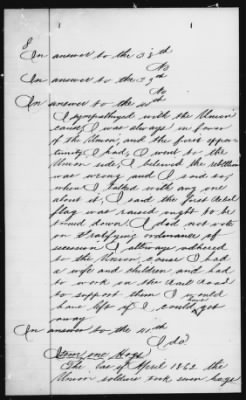 8
In answer to the 38th
No
In answer to the 39th
No
In answer to the 40th
I sympathized with the Union
cause, I was always in favor
of the Union, and the first oppor
tunity I had, I went to the
Union side, I believed the rebellion
was wrong and I said so,
when I talked with any one
about it, I said the first rebel
flag was raised ought to be
tored down. I did not vote
on ratifying ordinance of
secession I always adhered
to the Union cause I had
a wife and children and had
to work in the Rail Road
to support them I would
have left if I could have got
away
In answer to the 41st
I do.
Item one Hogs
The 1st of April 1862 the
Union soldiers took seven hogs